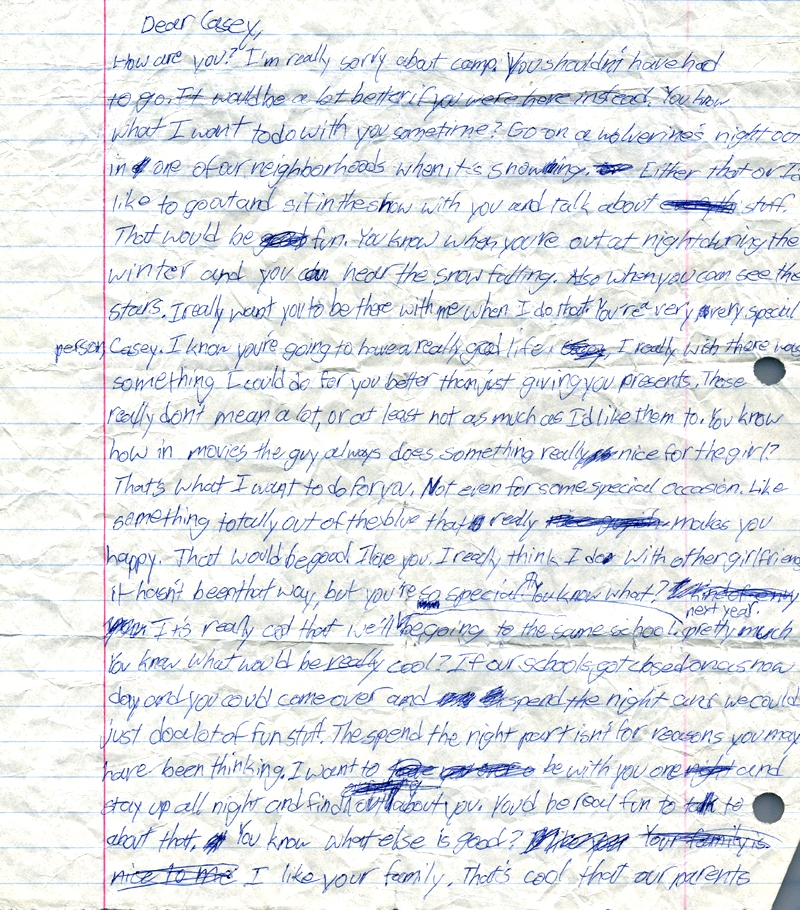 Dear Casey,
How are you? I'm really sorry about camp. You shouldn't have had
to go. It would be a lot better if you were here instead. You know
what I want to do with you sometime? Go on a wolverine's night out
in one of our neighborhoods when it's snowing. Either that or I'd
like to go out and sit in the snow with you and talk about stuff.
That would be fun. You know when you're out at night during the
winter and you can hear the snow falling. Also when you can see the
stars. I really want you to be there with me when I do that. You're a very very special
person, Casey. I know you're going to have a really good life. I really wish there was
something I could do for you better than just giving you presents. Those
really don't mean a lot, or at least not as much as I'd like them to. You know
how in movies the guy always does something really nice for the girl?
That's what I want to do for you. Not even for some special occasion. Like
something totally out of the blue that really makes you
happy. That would be good. I love you. I really think I do. With other girlfriend
it hasn't been that way, but you're so special. You know what? kind of envy
next year.
It's really cool that we'll be going to the same school pretty much
You know what would be really cool? If our schools got closed on a snow
day and you could come over and spend the night and we could
just do a lot of fun stuff. The spend the night part isn't for reasons you may
have been thinking. I want to be with you one night and
stay up all night and find out all about you. You'd be real fun to talk to
about that. You know what else is good? Your family is
nice to me I like your family. That's cool that our parents